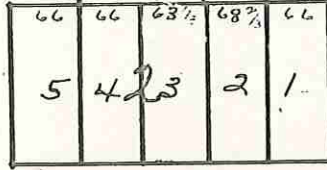 66 66 63 1/2 68 2/3 66
5 4 2 3 2 1